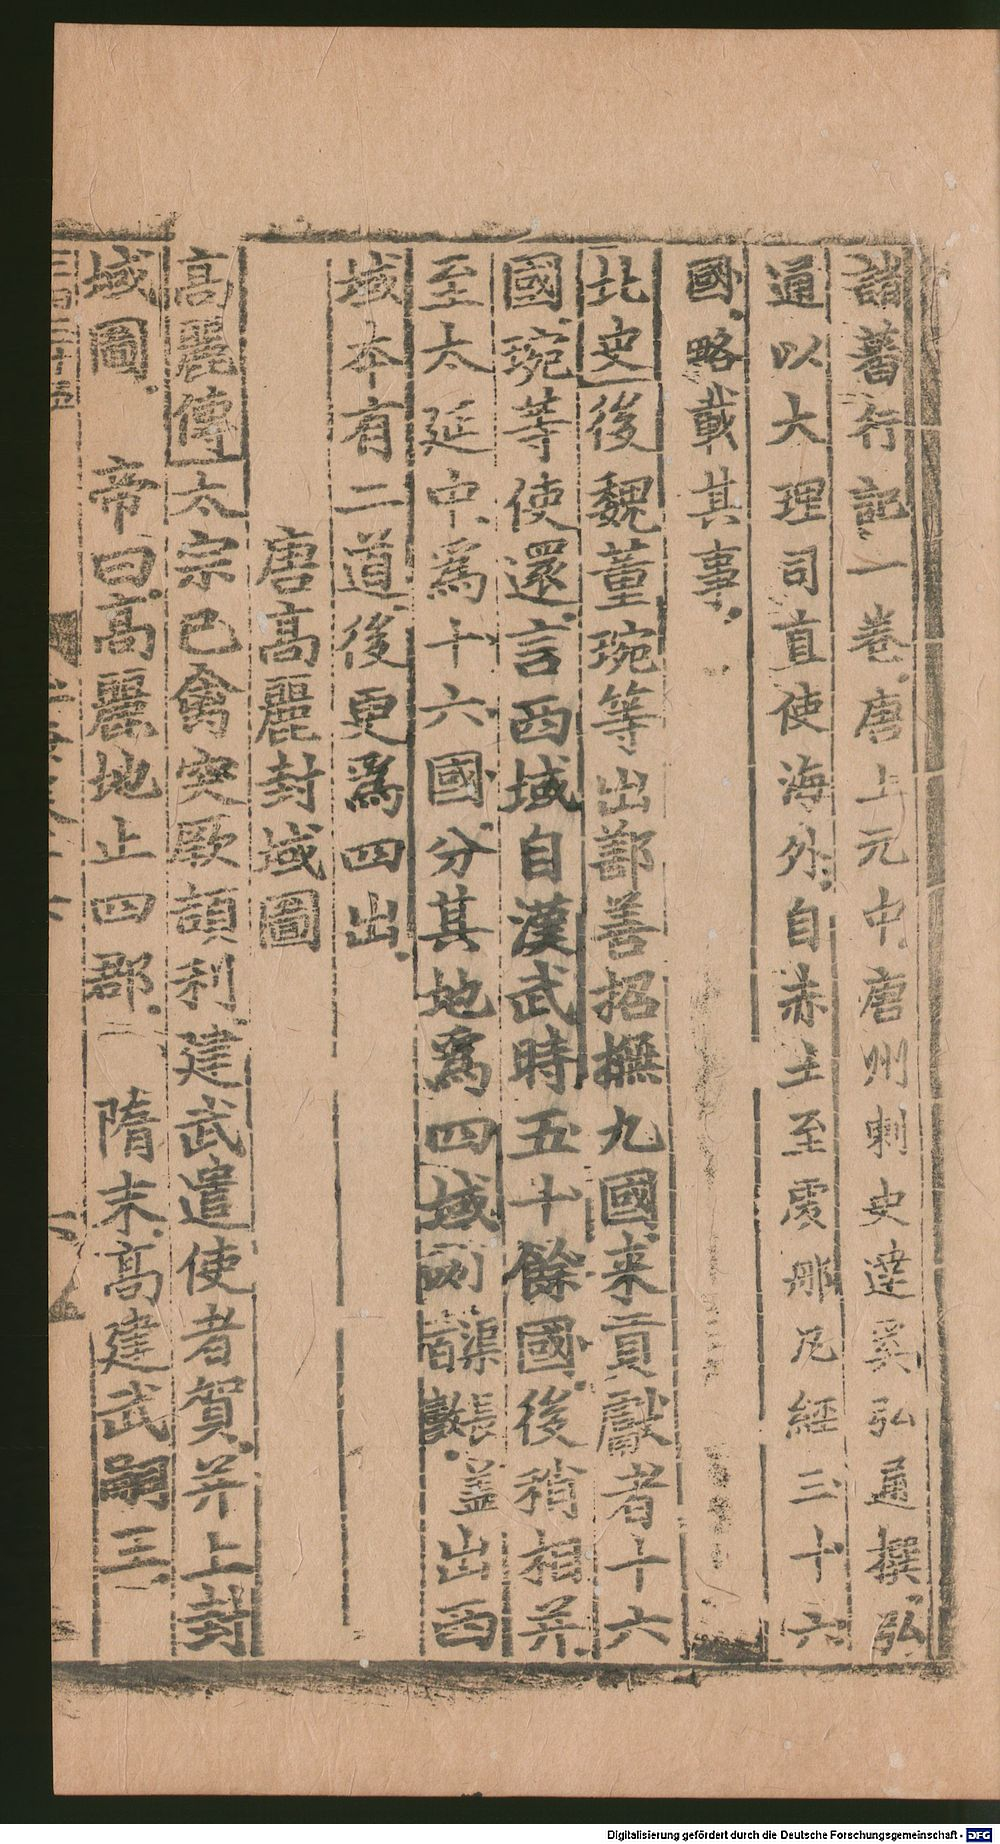 諸蕃行記一卷唐上元中唐州刺史達奚弘通撰弘
通以大理司直使海外自赤土至虔那凡經三十六
國略載其事
北史後魏董琬等出鄯善招撫九國来貢獻者十六
國琬等使還言西域自漢武時五十餘國後稍相并
至太延中爲十六國分其地爲四域
蓋出西
域本有二道後更爲四出
唐髙麗封域圖
高麗傳太宗已禽突厥頡利建武遣使者賀并上封
域圖 帝曰髙麗地止四郡 隋末髙建武嗣三
Digitalisierung gefördert durch die Deutsche Forschungsgemeinschaft - DFG